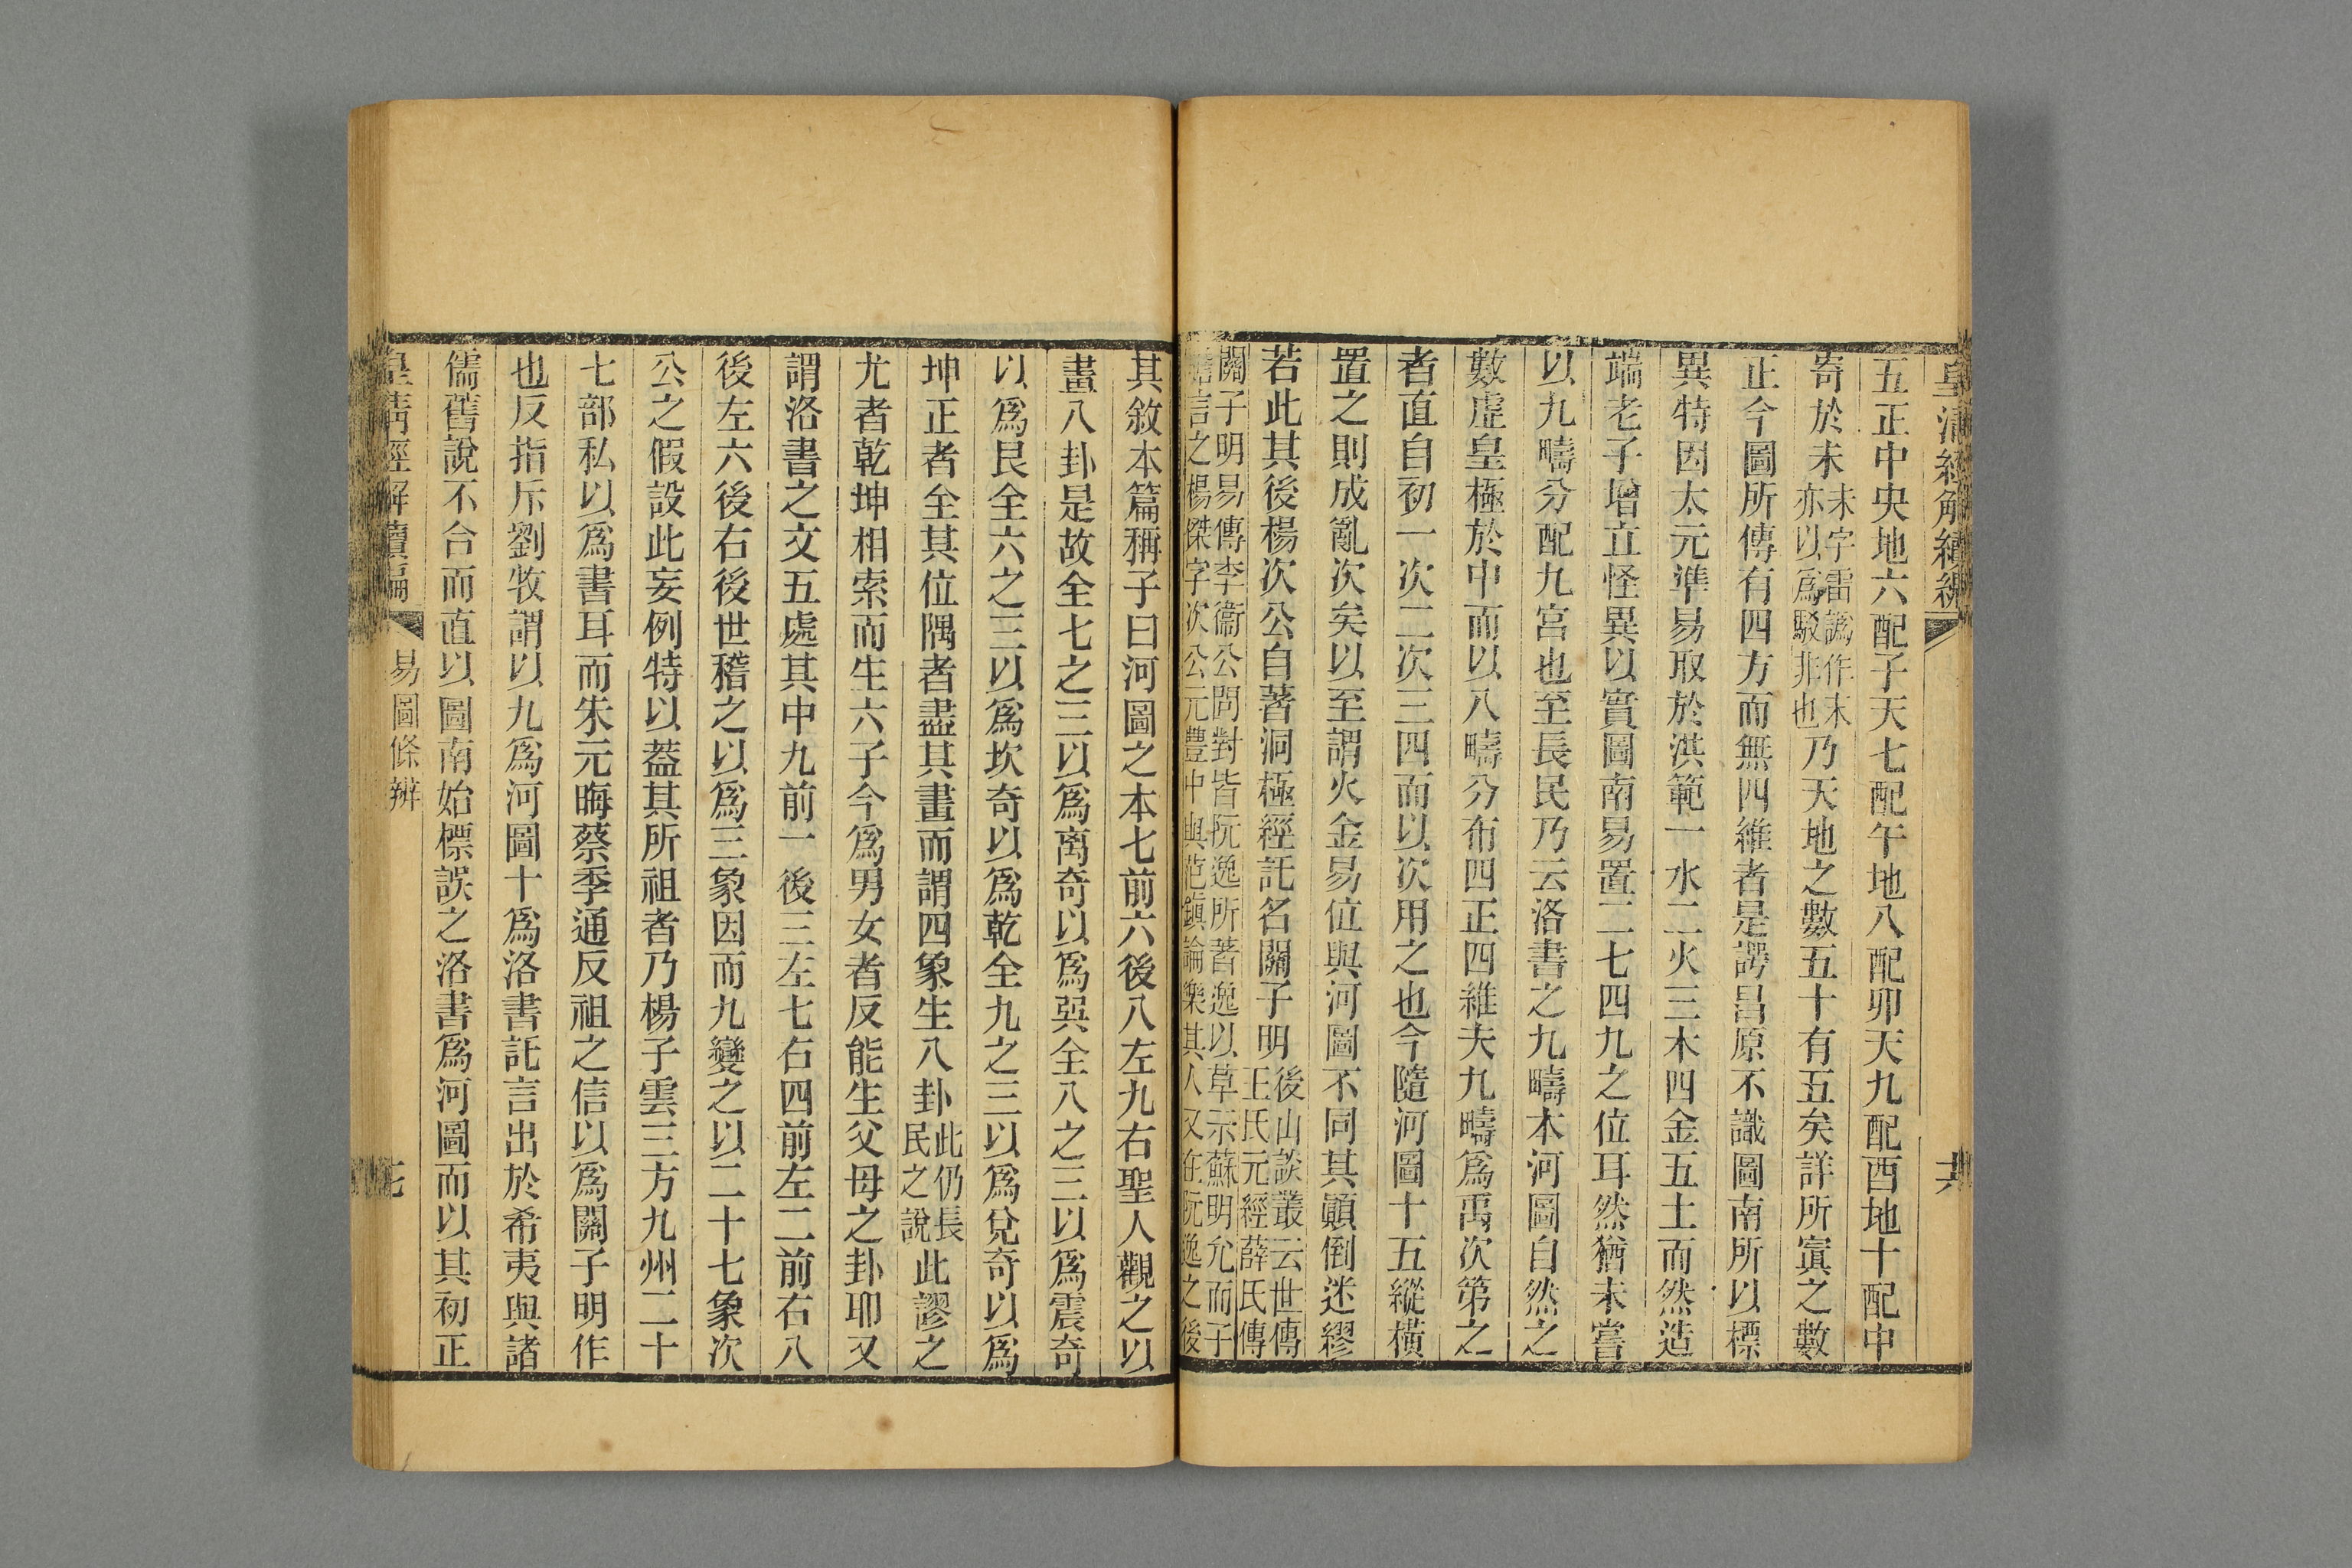 皇清經解續編
五正中央地六配子天七配午地八配卯天九配酉地十配中
寄於未未字雷譌作末亦以爲駁非也乃天地之數五十有五矣詳所寘之數
正今圖所傳有四方而無四維者是諤昌原不識圖南所以標
異特因太元準易取於洪範一水二火三木四金五土而然造
端老子增立怪異以實圖南易置二七四九之位耳然猶未嘗
以九疇分配九宮也至長民乃云洛書之九疇本河圖自然之
數虛皇極於中而以八疇分布四正四維夫九疇爲禹次第之
者直自初一次二次三四而以次用之也今隨河圖十五縱橫
置之則成亂次矣以至謂火金易位與河圖不同其顚倒迷繆
若此其後楊次公自著洞極經託名關子明後山談叢云世傳王氏元經薛氏傳
關子明易傳李衞公問對皆阮逸所著逸以草示蘇明允而子言之楊傑字次公元豐中與范鎭論樂其人又在阮逸之後
其敘本篇稱子曰河圖之本七前六後八左九右聖人觀之以
畫八卦是故全七之三以爲离奇以爲巽全八之三以爲震奇
以爲艮全六之三以爲坎奇以爲乾全九之三以爲兌奇以爲
坤正者全其位隅者盡其畫而謂四象生八卦此仍長民之說此謬之
尤者乾坤相索而生六子今爲男女者反能生父母之卦耶又
謂洛書之文五處其中九前一後三左七右四前左二前右八
後左六後右後世稽之以爲三象因而九變之以二十七象次
公之假設此妄例特以葢其所祖者乃楊子雲三方九州二十
七部私以爲書耳而朱元晦蔡季通反祖之信以爲關子明作
也反指斥劉牧謂以九爲河圖十爲洛書託言出於希夷與諸
儒舊說不合而直以圖南始標誤之洛書爲河圖而以其初正
皇清經解續編
易圖條辨